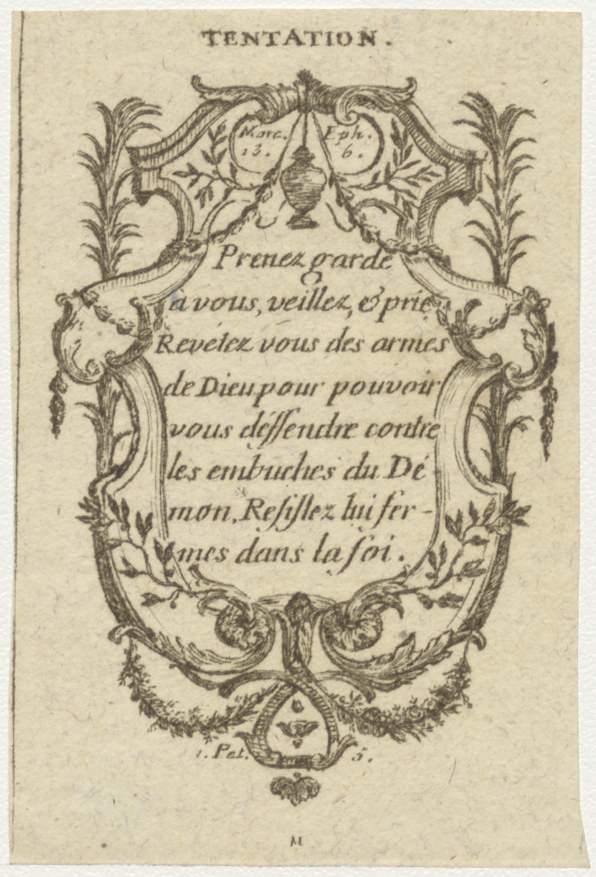 TENTATION.
Marc. Eph.
13. 6.
Prenez garde
à vous, veillez, & prie
Revétez vous des armes
de Dieu pour pouvoir
vous déffendre contre
les embuches du Dé
mon, Resistez lui fer-
mes dans la foi.
1. Pet. 5.
M